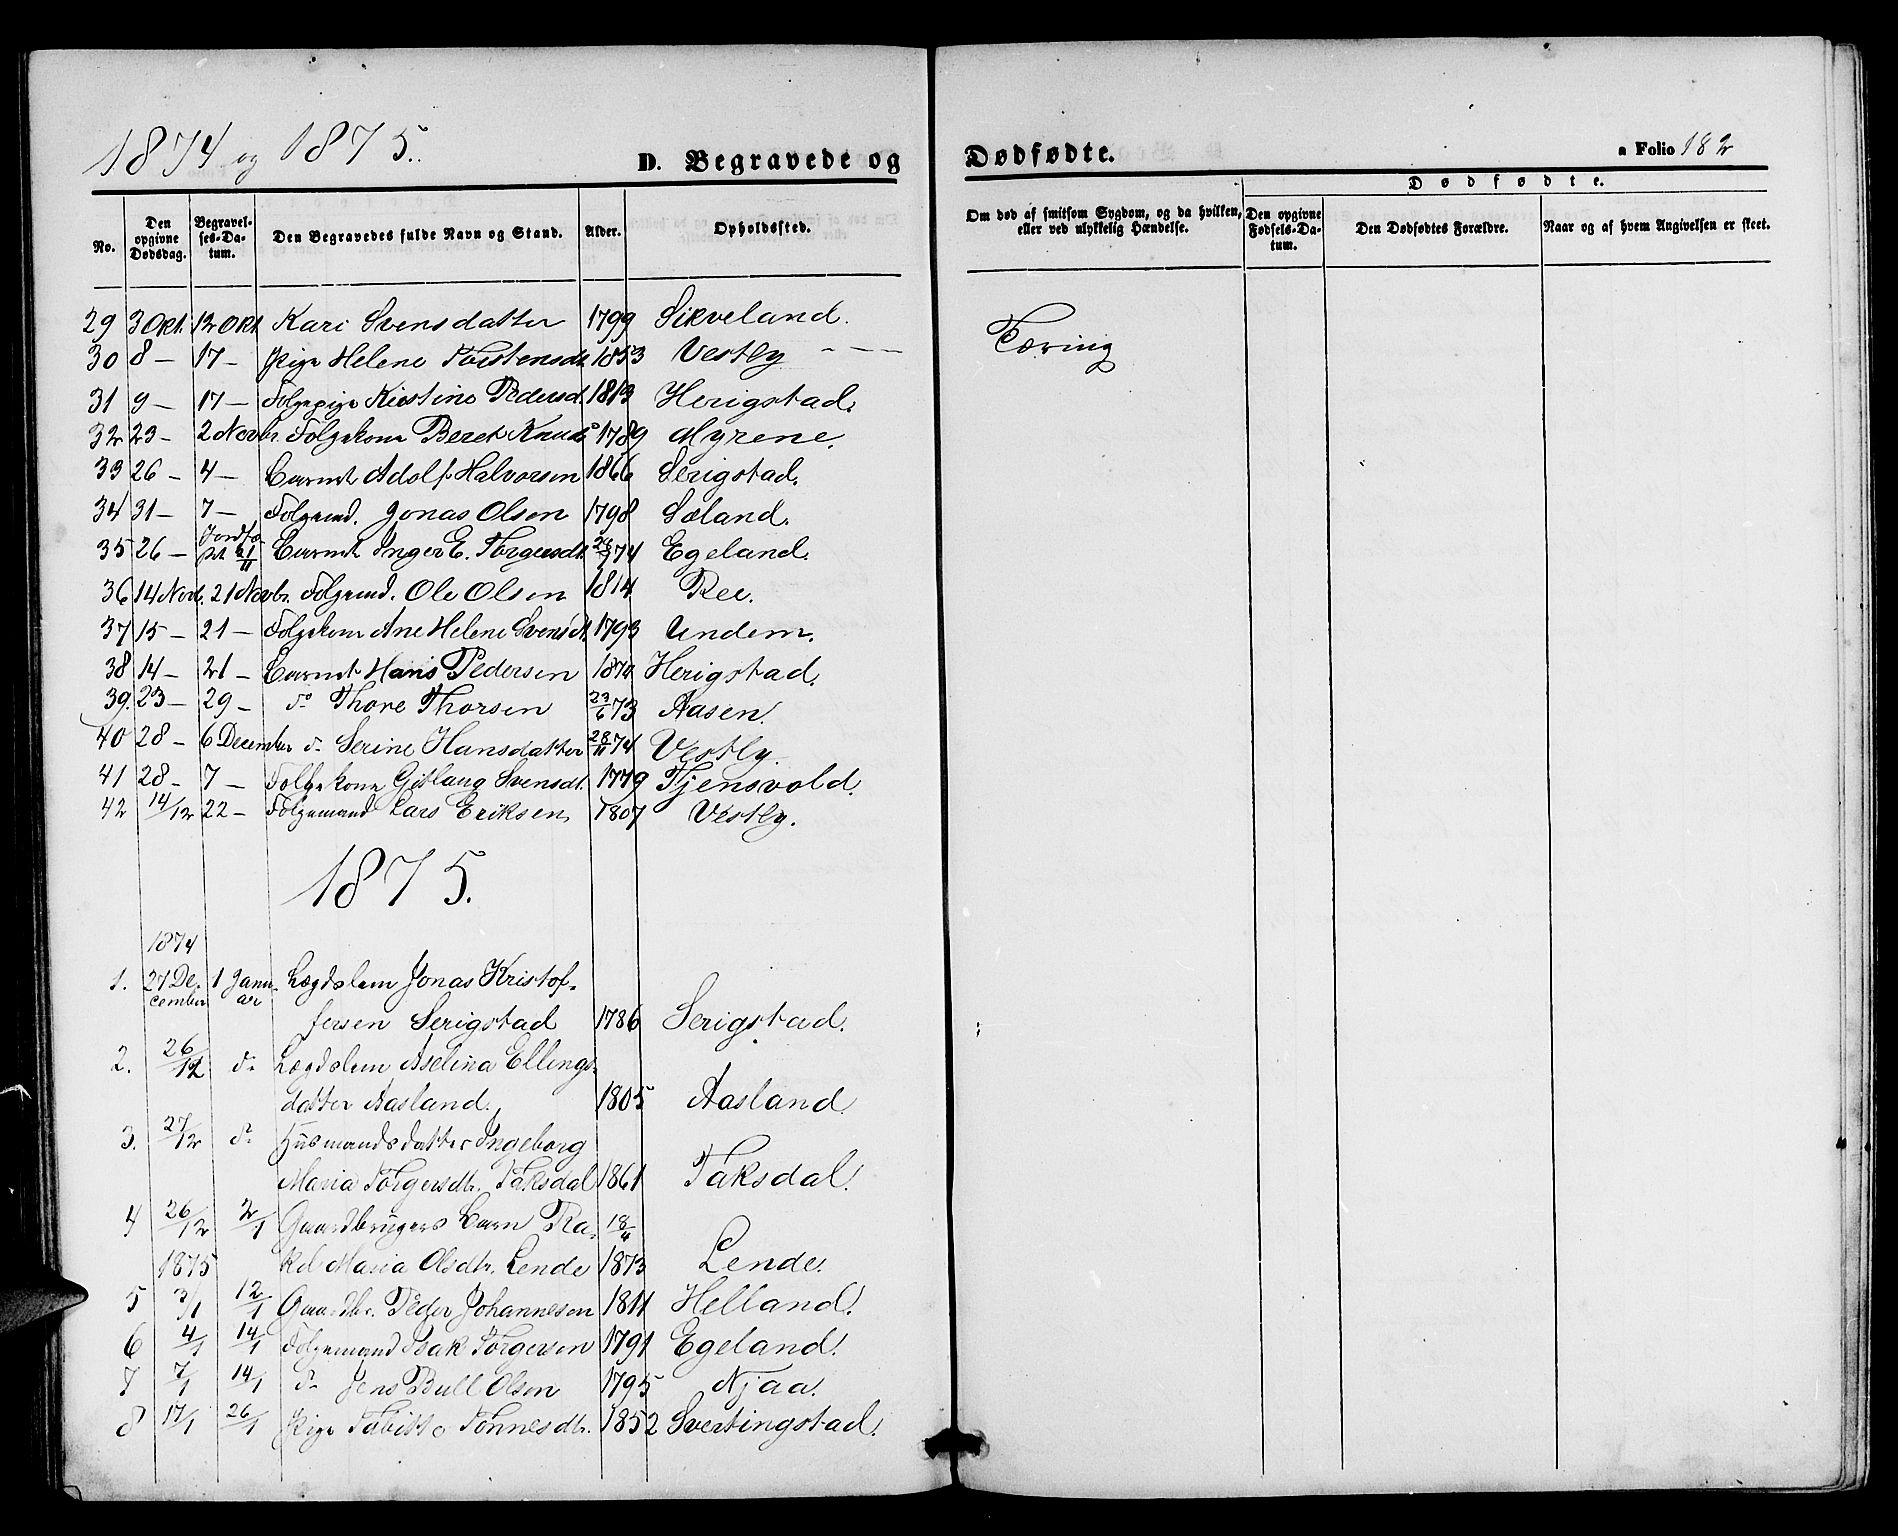 1874 og 1875.
D. Begravede og Dødfødte.
a Folio 182
No.
Den opgivne Dødsdag.
Begravelses-Datum.
Den Begravedes fulde Navn og Stand.
Alder.
Opholdssted.
Om død af smitsom Sygdom, og da hvilken, eller ved ulykkelig Hændelse.
Dødfødte.
Den opgivne Fødsels-Datum.
Den Dødfødtes Forældre.
Naar og af hvem Angivelsen er skeet.
29 3 Okt. 12 Okt. Kari Svensdatter 1799 Sikveland.
30 8 – 17 – Pige Helene Torstensdt. 1853 Vestly – – – Tæring
31 9 – 17 – Følgepige Kirstine Pedersd. 1813 Herigstad.
32 23 – 2 Novbr. Følgekone Beret Knuds 1789 Myrene.
33 26 – 4 – Barnet Adolf Halvorsen 1866 Serigstad.
34 31 – 7 – Følgemd. Jonas Olsen 1798 Sæland.
35 26 – Jordfæstet 21/11 Barnet Inger E. Torgersdt. 74 Egeland.
36 14 Novb. 21 Novbr. Følgemd. Ole Olsen 1814 Ree.
37 15 – 21 – Følgekone Ane Helene Svensdt. 1793 Undem.
38 14 – 21 – Barnet Hans Pedersen 1872 Herigstad.
39. 23 – 29 – do Thore Thorsen 23/6 73 Aasen.
40 28 – 6 December do Serine Hansdatter 28/11 74 Vestly.
41 28 – 7 – Følgekone Gitlaug Svensdt. 1779 Tjensvold.
42 14/12 22 – Følgemand Lars Eriksen 1807 Vestly.
1875.
1874
1. 27 De- 1 Janu- Lægdslem Jonas Kristof-
cember ar fersen Serigstad 1786 Serigstad.
2. 26/12 do Lægdslem Aselina Ellings-
datter Aasland. 1805 Aasland.
3. 27/12 do Husmandsdatter Ingeborg
Maria Torgersdtr. Taksdal 1861 Taksdal.
4 26/12 2/1 Gaardbrugers Barn Ra- 18/4
1875 kel Maria Olsdtr. Lende 1873 Lende.
5 3/1 12/1 Gaardbr. Peder Johannesen 1811 Helland.
6 4/1 14/1 Følgemand Isak Torgersen 1791 Egeland.
7 7/1 14/1 do Jens Bull Olsen 1795 Njaa.
8 17/1 26/1 Pige Tabitte Tønnesdtr. 1852 Svertingstad.